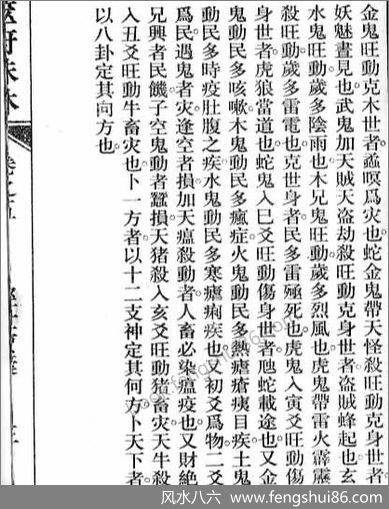 金鬼旺動克木世者螟爲灾也蛇金鬼帶天怪殺旺動克身世者
妖魅晝見也武鬼加天賊天盗劫殺旺動克身世者盗賊蜂起也玄
水鬼旺動歲多陰雨也木兄鬼旺動歲多烈風也虎鬼帶雷火霹靂
殺旺動歲多雷電也克世身者民多雷殛死也虎鬼入寅爻旺動傷
身世者虎狼當道也蛇鬼入巳爻旺動傷身世者虺蛇載途也又金
鬼動民多咳嗽木鬼動民多瘋症火鬼動民多熱瘡痍目疾土鬼
動民多時疫肚腹之疾水鬼動民多寒瘧痢疾也又初爻爲物二爻
爲民遇鬼者灾逢空者損加天瘟殺動者人畜必染瘟疫也又財絶
兄興者民饑子空鬼動者蠶損天猪殺入亥爻旺動猪畜灾天牛殺
入丑爻旺動牛畜灾也卜一方者以十二支神定其何方卜天下者
以八卦定其向方也
风水八六 www.fengshui86.com